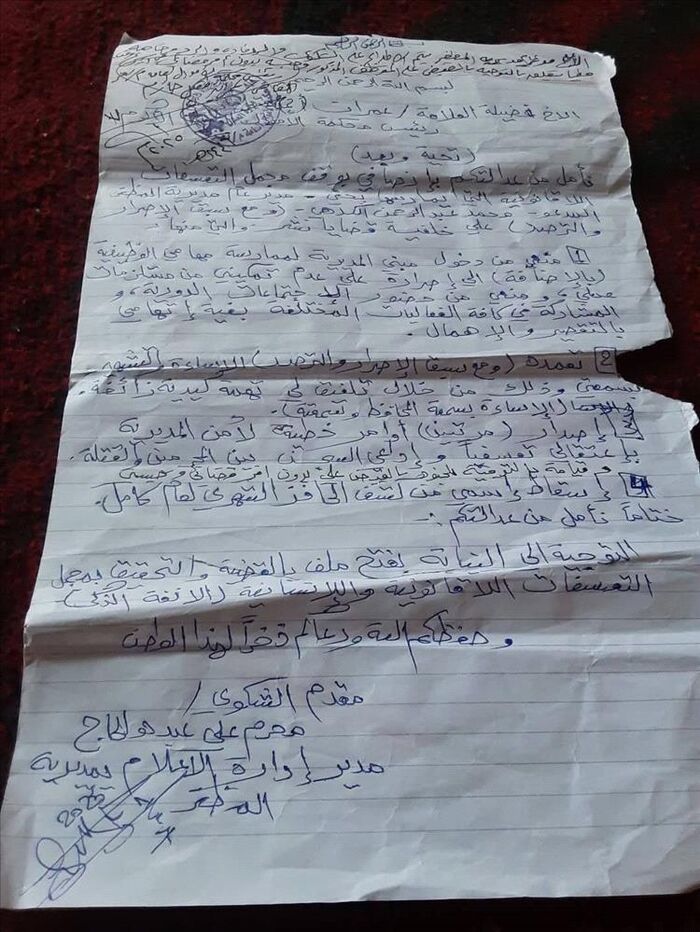 بسم الله الرحمن الرحيم
الأخ فضيلة العلامة / عمران
رئيس محكمة
(تحية وبعد)
نأمل من عدالتكم بإنصافي بوقف مجمل التعسفات
اللاقانونية التي يمارسها بحقي - مدير عام مديرية المظفر
المدعو - محمد عبدالرحمن الكدهي (ومع سبق الإصرار
والترصد) على خلفية قضايا نشر - والتي منها:
1 منعي من دخول مبنى المديرية لممارسة مهامي الوظيفية
(بالإضافة) إلى إصراره على عدم تمكيني من مستلزمات
عملي، ومنعي من حضور الاجتماعات الدورية، و
المشاركة في كافة الفعاليات المختلفة بغية إتهامي
بالتقصير والإهمال.
2 تعمده (ومع سبق الإصرار والترصد) الإساءة والتشهير
بسمعتي وذلك من خلال تلفيق لي تهمة كيدية زائفة.
(الإساءة بسمعة المحافظ وسمعته).
3 إصدار (مرتين) أوامر خطية لأمن المديرية
بإعتقالي تعسفياً وإيداعي السجن بين المجرمين والقتلة.
وقيامه بالتوجيه بالقبض علي بدون أمر قضائي وحبسي
4 إسقاط إسمي من كشف الحافز الشهري لعام كامل.
ختاماً نأمل من عدالتكم :-
التوجيه إلى النيابة بفتح ملف بالقضية والتحقيق بمجمل
التعسفات اللاقانونية واللاإنسانية (الآنفة الذكر)
وحفظكم الله ورعاكم ذخراً لهذا الوطن
مقدم الشكوى /
محرم علي عبده الحاج
مدير إدارة الإعلام بمديرية
المظفر